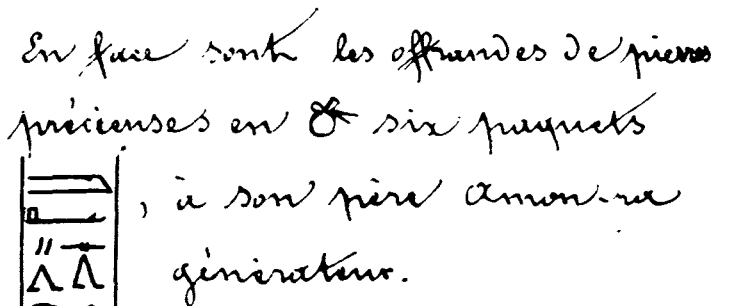 En face sont les offrandes de pierres
précieuses en six paquets
, à son père Amon-ra
générateur.